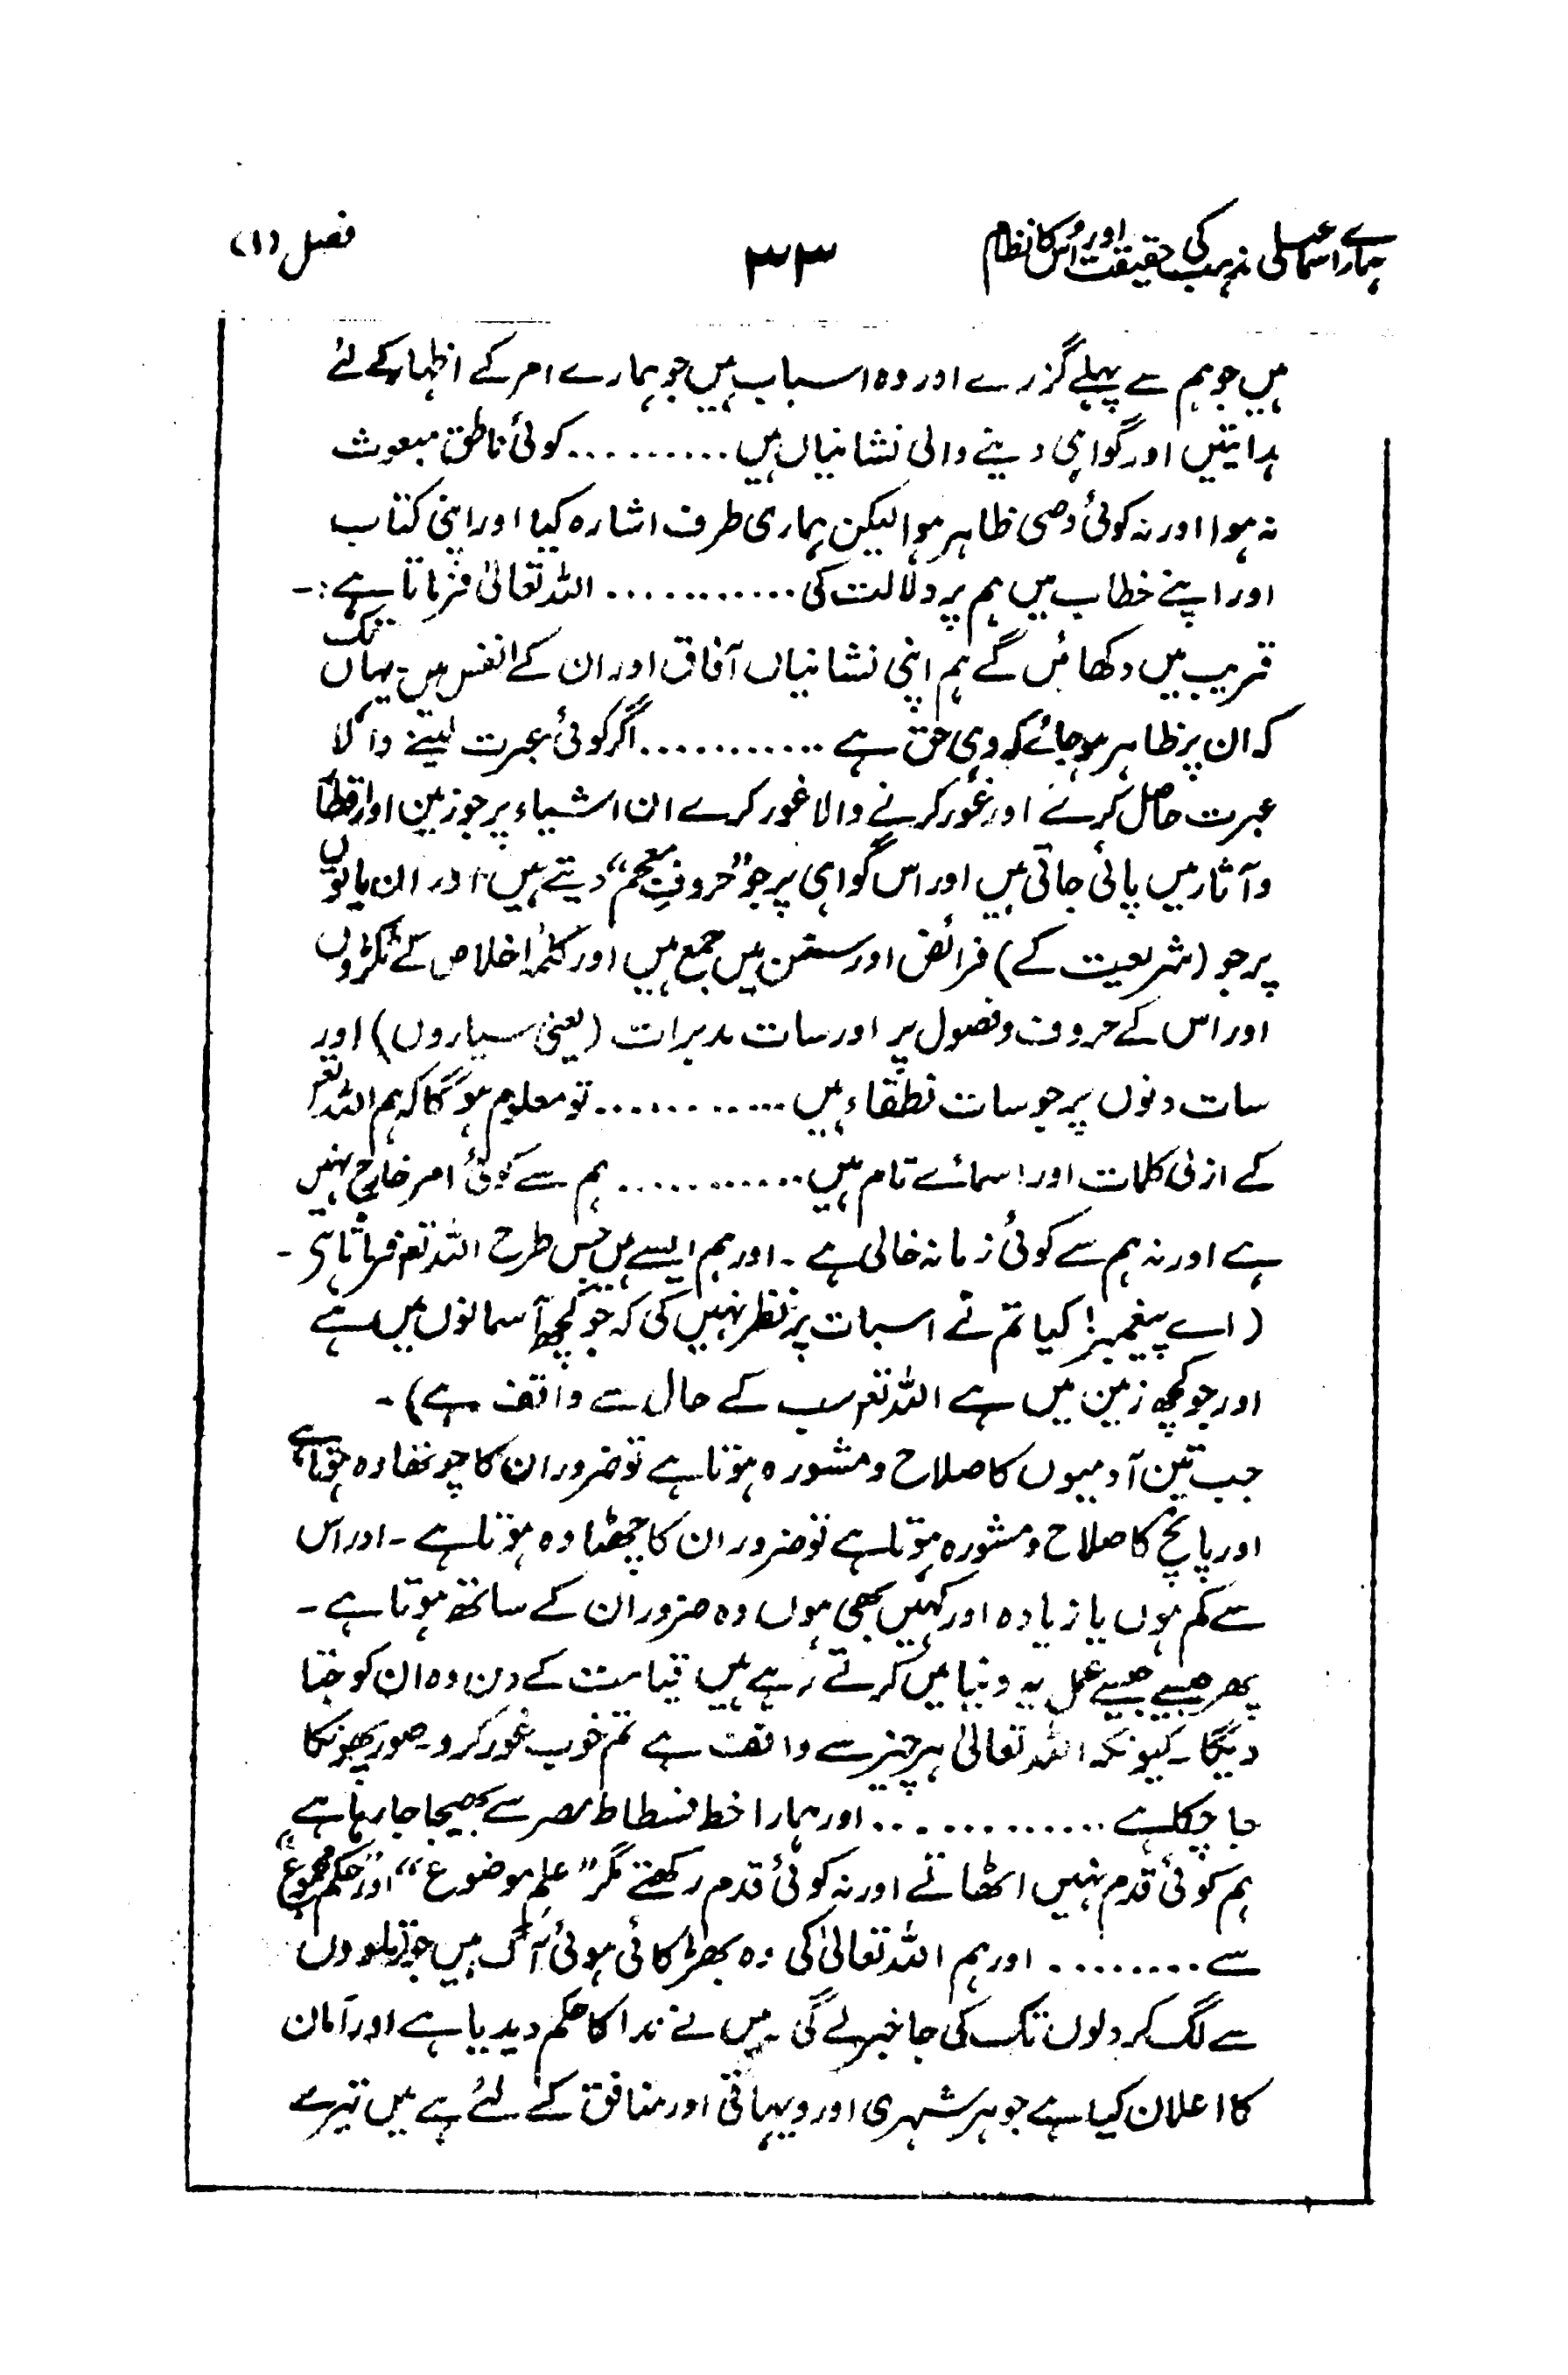 ہمارے اسماعیلی مذہب کی حقیقت اور اُس کا نظام
۳۳
فصل (۱)
ہیں جو ہم سے پہلے گزرے اور وہ اسباب ہیں جو ہمارے امر کے اظہار کے لئے
ہدایتیں اور گواہی دینے والی نشانیاں ہیں .......... کوئی ناطق مبعوث
نہ ہوا اور نہ کوئی وصی ظاہر ہوا لیکن ہماری طرف اشارہ کیا اور اپنی کتاب
اور اپنے خطاب میں ہم پر دلالت کی ........... اللہ تعالیٰ فرماتا ہے :-
قریب میں دکھائیں گے ہم اپنی نشانیاں آفاق اور ان کے انفس میں یہاں تک
کہ ان پر ظاہر ہو جائے کہ وہی حق ہے ............ اگر کوئی عبرت لینے والا
عبرت حاصل کرے اور غور کرنے والا غور کرے ان اشیاء پر جو زمین اور اقطار
و آثار میں پائی جاتی ہیں اور اس گواہی پر جو "حروفِ معجم" دیتے ہیں اور ان باتوں
پر جو (شریعت کے) فرائض اور سنن میں جمع ہیں اور کلمۂ اخلاص کے ٹکڑوں
اور اس کے حروف و فصول پر اور سات مدبرات (یعنی سیاروں) اور
سات دنوں پر جو سات نطقاء ہیں ............ تو معلوم ہو گا کہ ہم اللہ تعم
کے ازلی کلمات اور اسمائے تام ہیں ............ ہم سے کوئی امر خارج نہیں
ہے اور نہ ہم سے کوئی زمانہ خالی ہے ۔ اور ہم ایسے ہیں جس طرح اللہ تعم فرماتا ہے ۔
(اے پیغمبر! کیا تم نے اس بات پر نظر نہیں کی کہ جو کچھ آسمانوں میں ہے
اور جو کچھ زمین میں ہے اللہ تعم سب کے حال سے واقف ہے) ۔
جب تین آدمیوں کا صلاح و مشورہ ہوتا ہے تو ضرور ان کا چوتھا وہ ہوتا ہے
اور پانچ کا صلاح و مشورہ ہوتا ہے تو ضرور ان کا چھٹا وہ ہوتا ہے ۔ اور اس
سے کم ہوں یا زیادہ اور کہیں بھی ہوں وہ ضرور ان کے ساتھ ہوتا ہے ۔
پھر جیسے جیسے عمل یہ دنیا میں کرتے رہے ہیں قیامت کے دن وہ ان کو جتا
دیگا ۔ کیونکہ اللہ تعالیٰ ہر چیز سے واقف ہے تم خوب غور کرو ۔ صور پھونکا
جا چکا ہے ............. اور ہمارا خط فسطاط مصر سے بھیجا جا رہا ہے
ہم کوئی قدم نہیں اٹھاتے اور نہ کوئی قدم رکھتے مگر "علمِ موضوع" اور "حکمِ مجموع"
سے ........ اور ہم اللہ تعالیٰ کی وہ بھڑکائی ہوئی آگ ہیں جو تلووں
سے لگ کر دلوں تک کی جا خبر لے گی ۔ میں نے ندا کا حکم دیدیا ہے اور امان
کا اعلان کیا ہے جو ہر شہری اور دیہاتی اور منافق کے لئے ہے میں تیرے